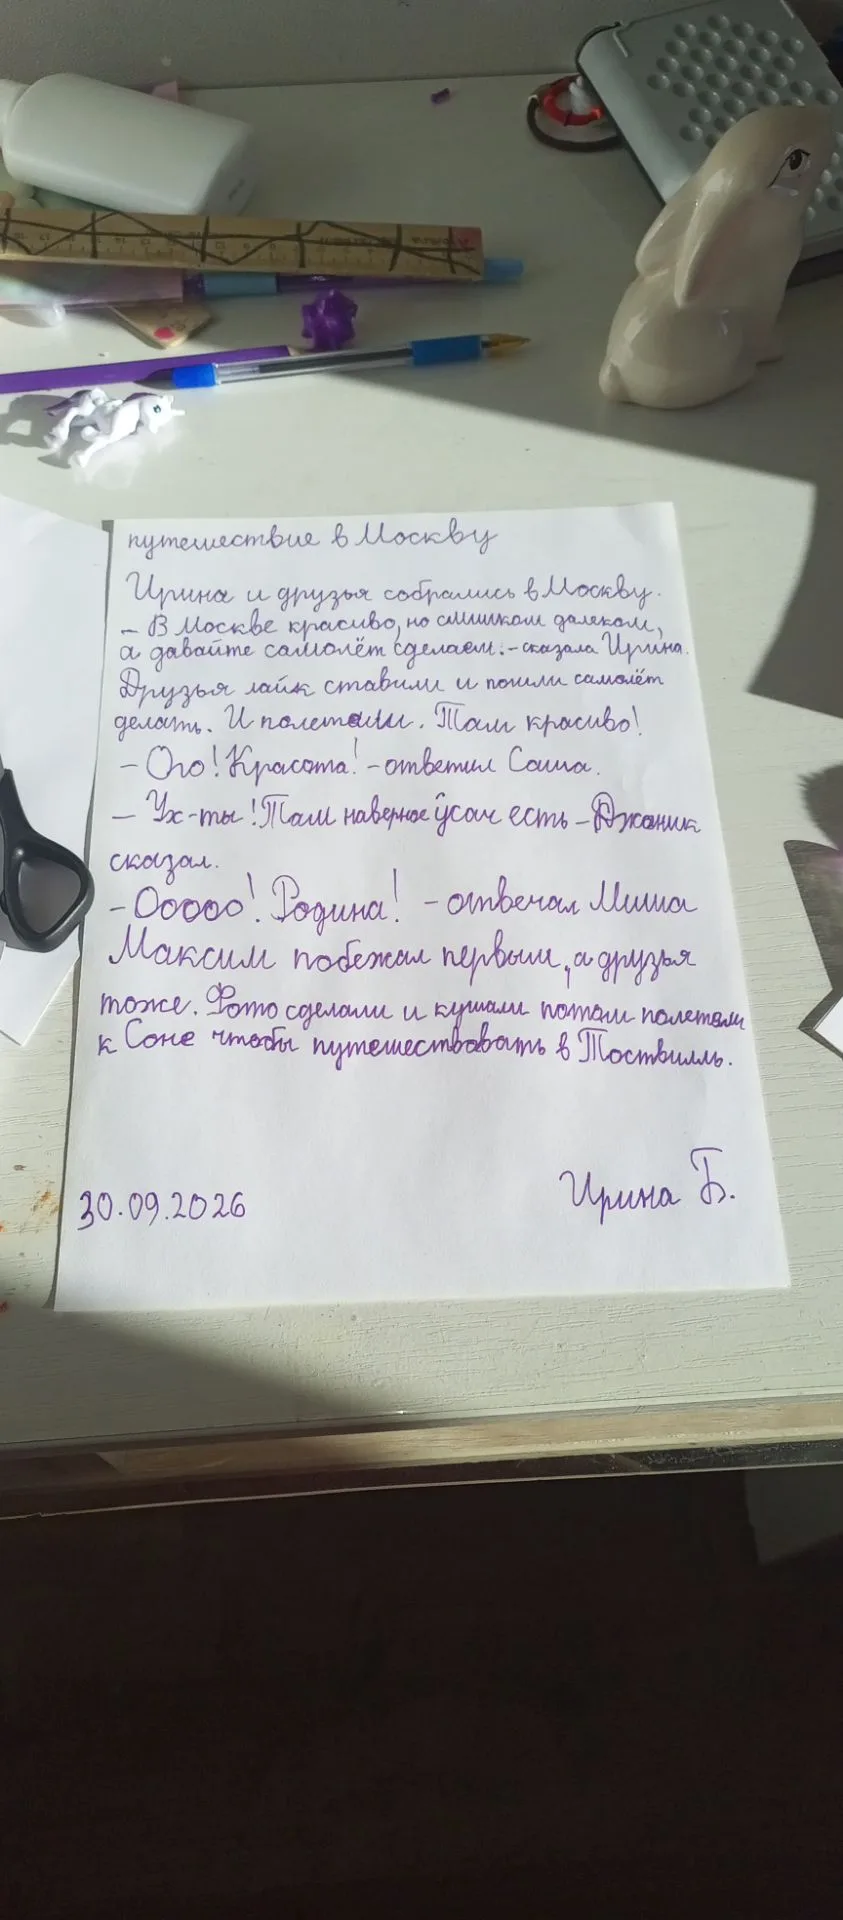 путешествие в Москву
Ирина и друзья собрались в Москву.
- В Москве красиво, но слишком далеком,
а давайте самолёт сделаем. - сказала Ирина.
Друзья лайк ставили и пошли самолёт
делать. И полетели. Там красиво!
- Ого! Красота! - ответил Саша.
- Ух-ты! Там наверное усач есть - Джоник
сказал.
- Ооооо! Родина! - отвечал Миша
Максим побежал первым, а друзья
тоже. Фото сделали и кушали потом полетели
к Соне чтобы путешествовать в Тоствилль.
30.09.2026
Ирина Б.